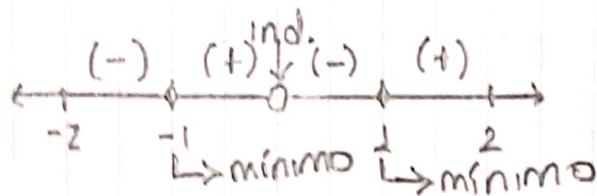 ind.
(-) (+) (-) (+)
-2 -1 1 2
mínimo mínimo